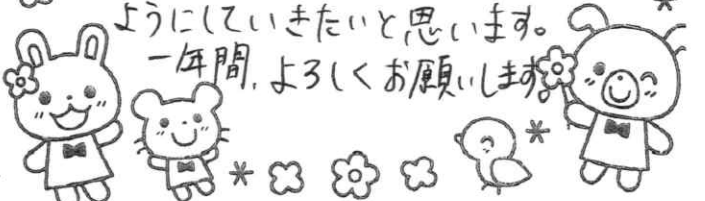 ようにしていきたいと思います。
一年間、よろしくお願いします。